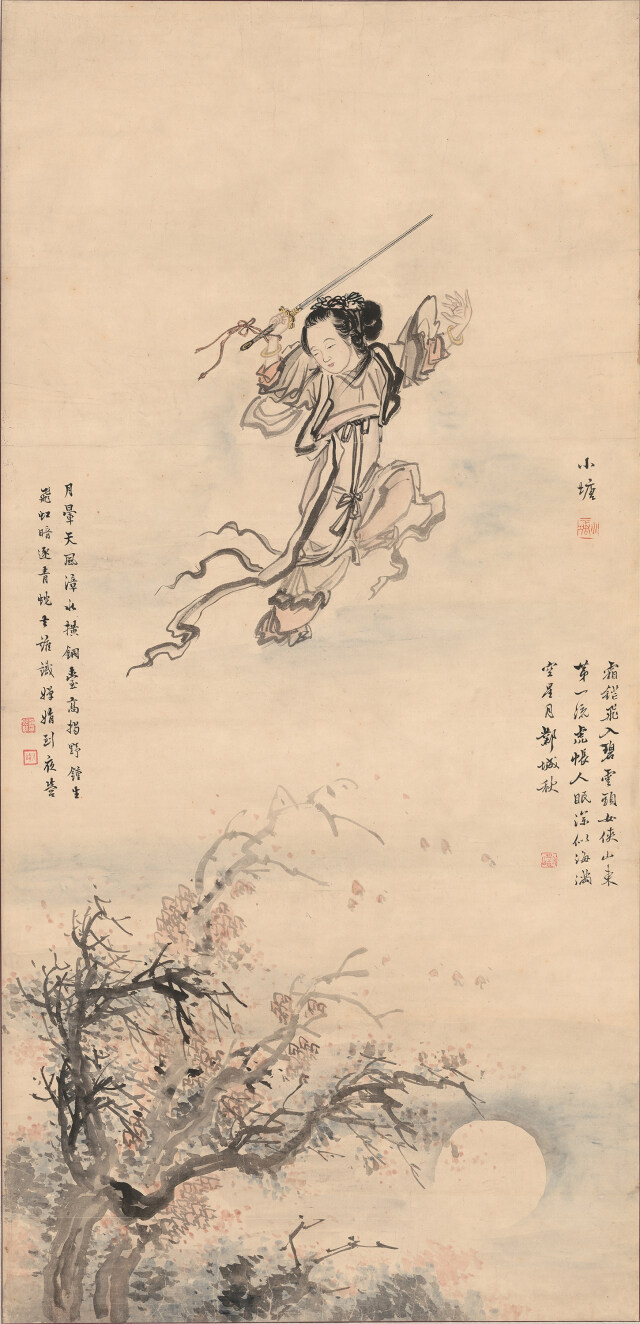 小塘
霜稜飛入碧雲頭女俠山東
第一流虎帳人眠深似海滿
空星月鄴城秋
月暈天風漳水橫銅臺高揭野鐘生
飛虹暗逐青蛇去誰識嬋娟到夜營